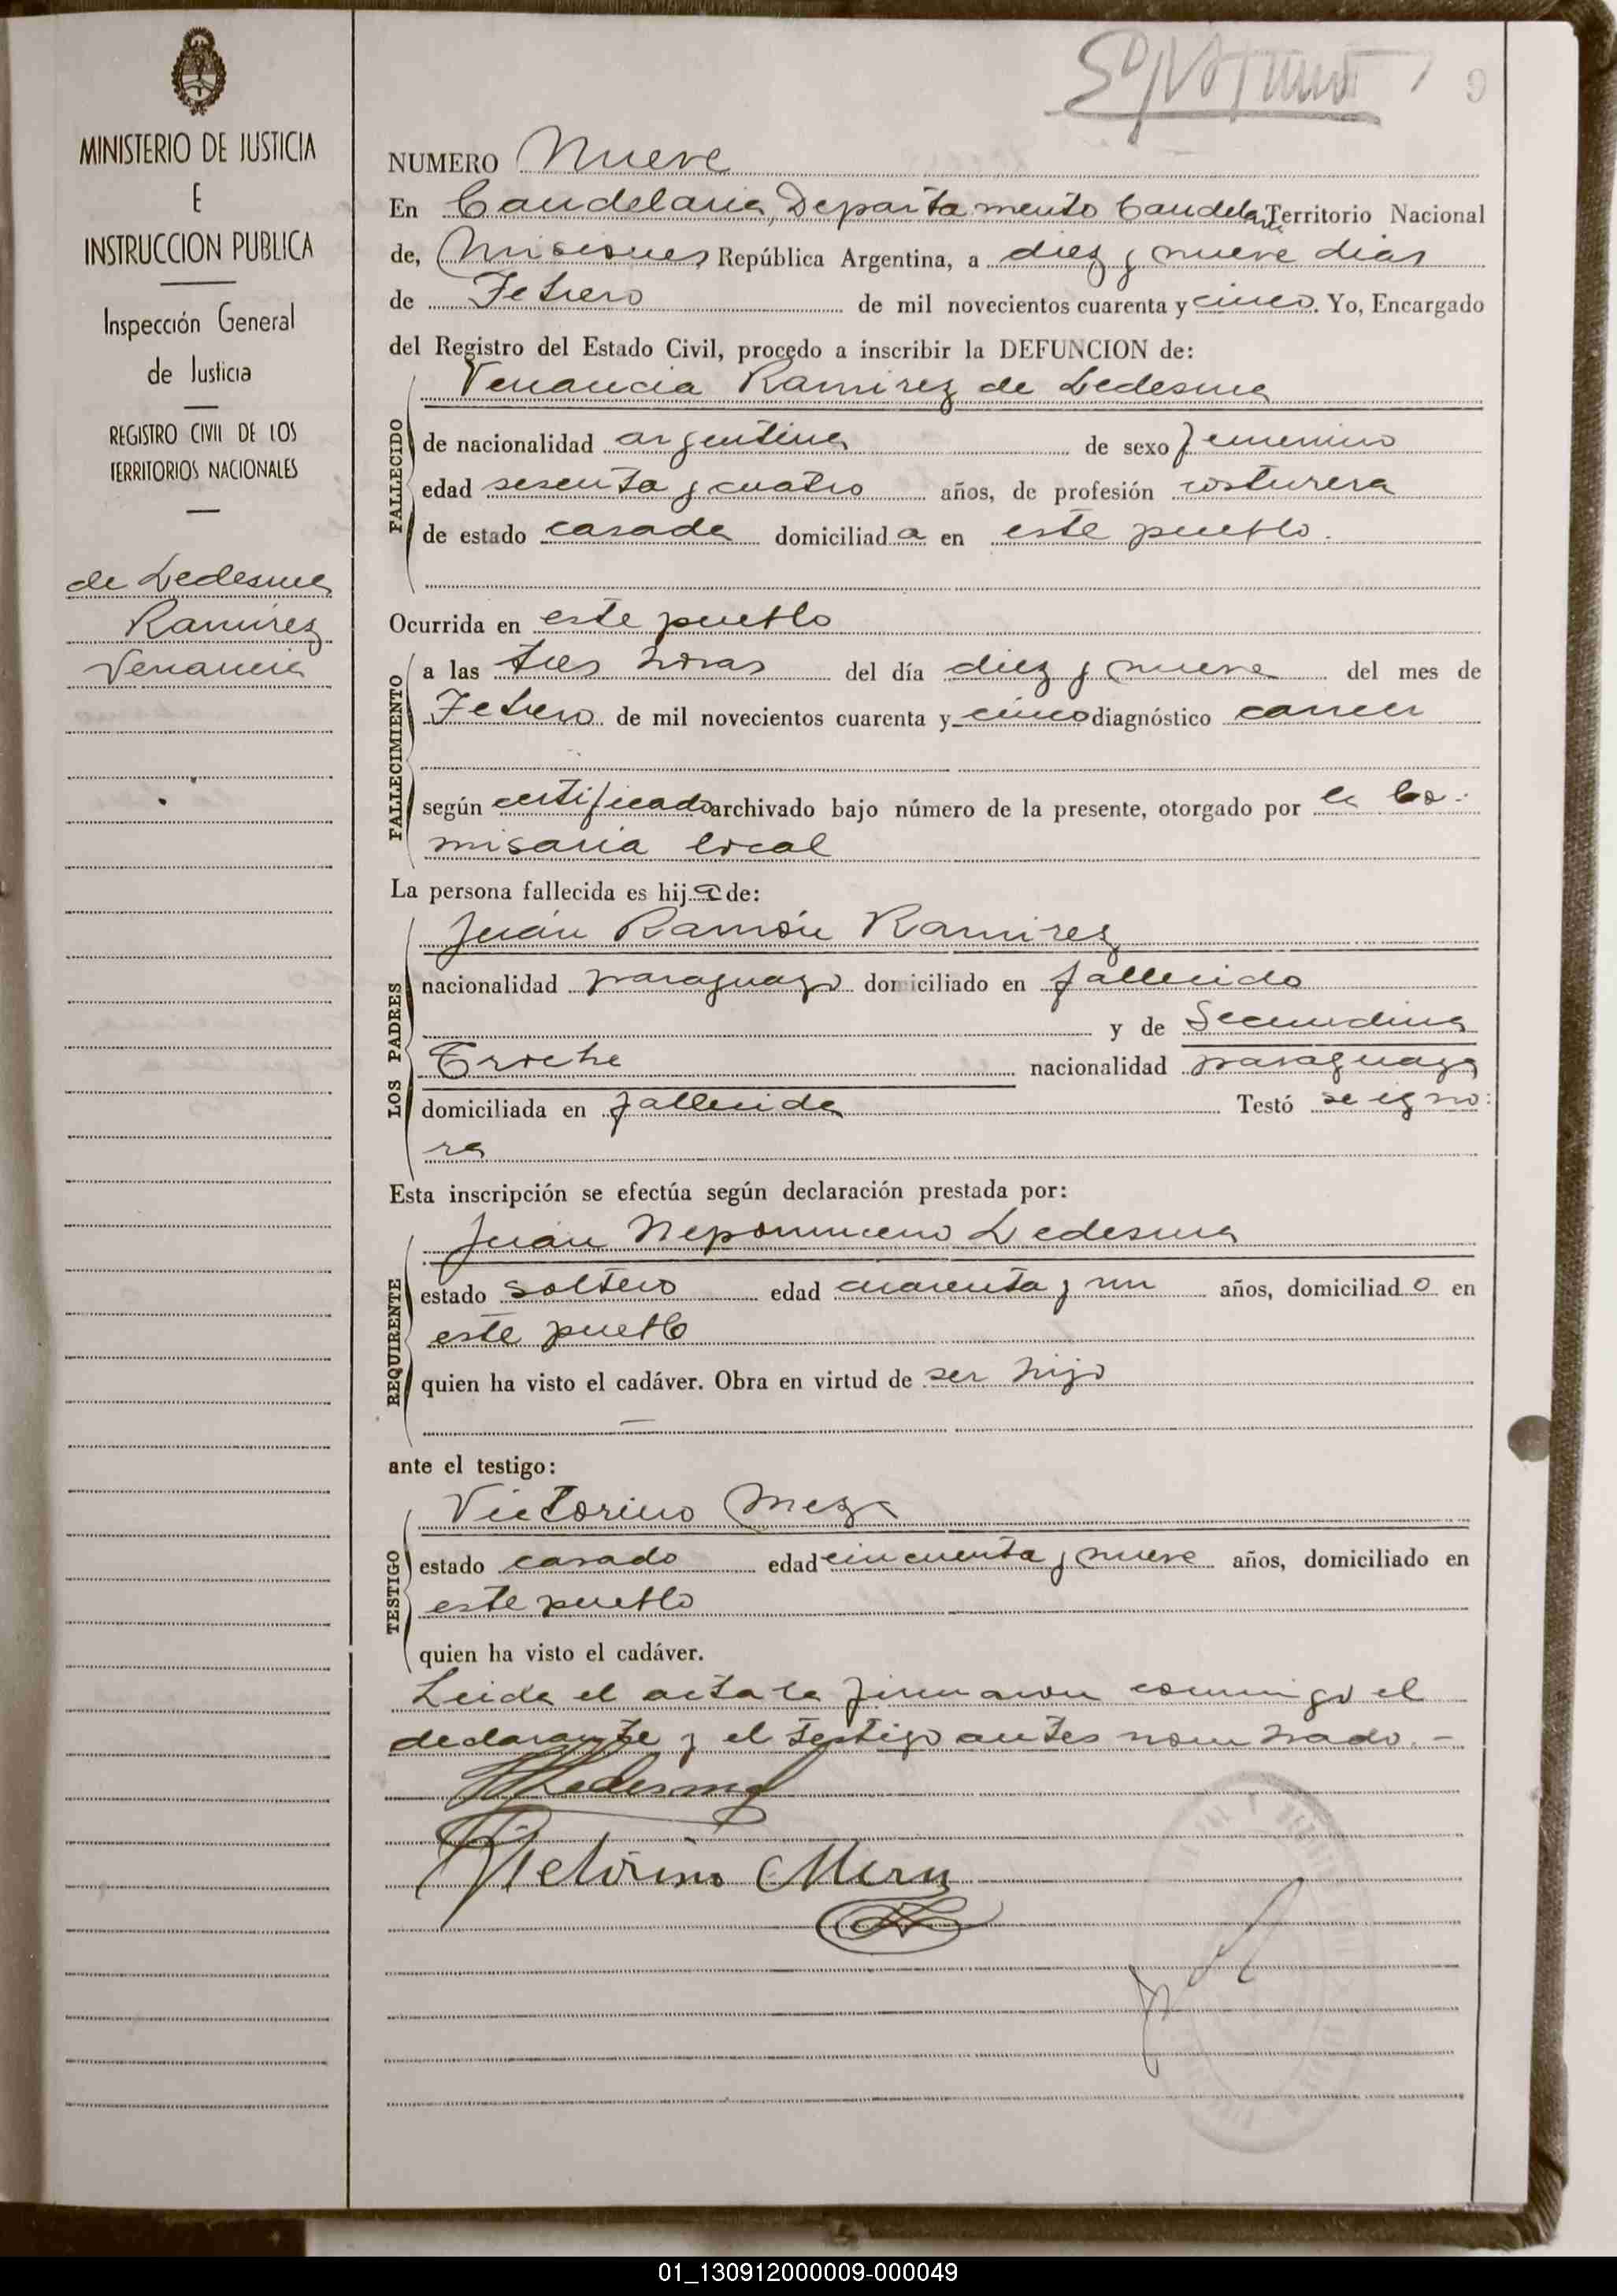 MINISTERIO DE JUSTICIA
E
INSTRUCCION PUBLICA
Inspección General
de Justicia
REGISTRO CIVIL DE LOS
TERRITORIOS NACIONALES
de Ledesma
Ramirez
Venancia
9
NUMERO Nueve
En Candelaria, Departamento Candelaria Territorio Nacional
de, Misiones República Argentina, a diez y nueve dias
de Febrero de mil novecientos cuarenta y cinco. Yo, Encargado
del Registro del Estado Civil, procedo a inscribir la DEFUNCION de:
Venancia Ramirez de Ledesma
FALLECIDO
de nacionalidad argentina de sexo femenino
edad sesenta y cuatro años, de profesión costurera
de estado casada domiciliad a en este pueblo.
Ocurrida en este pueblo
FALLECIMIENTO
a las tres horas del día diez y nueve del mes de
Febrero de mil novecientos cuarenta y cinco diagnóstico cancer
según certificado archivado bajo número de la presente, otorgado por la Co-
misaria local
La persona fallecida es hij a de:
LOS PADRES
Juán Ramón Ramirez
nacionalidad paraguayo domiciliado en fallecido
y de Secundina
Troche nacionalidad paraguaya
domiciliada en fallecida Testó se igno-
ra
Esta inscripción se efectúa según declaración prestada por:
REQUIRENTE
Juán Nepomuceno Ledesma
estado soltero edad cuarenta y un años, domiciliad o en
este pueblo
quien ha visto el cadáver. Obra en virtud de ser hijo
ante el testigo:
TESTIGO
Victorino Meza
estado casado edad cincuenta y nueve años, domiciliado en
este pueblo
quien ha visto el cadáver.
Leida el acta la firmaron conmigo el
declarante y el testigo antes nombrado. -
Ledesma
Victorino Meza
01_130912000009-000049